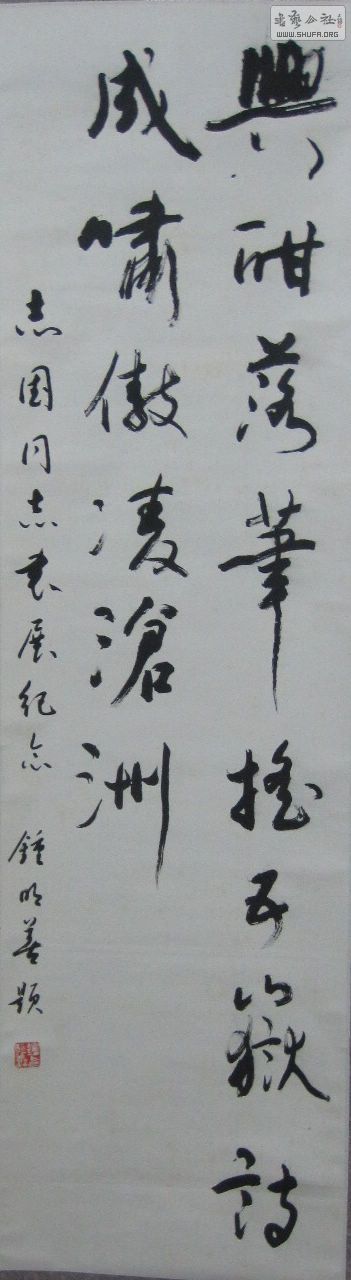 興酣落筆搖五嶽詩
成嘯傲凌滄洲
志国同志書展紀念 鍾明善題
書藝公社
WWW.SHUFA.ORG